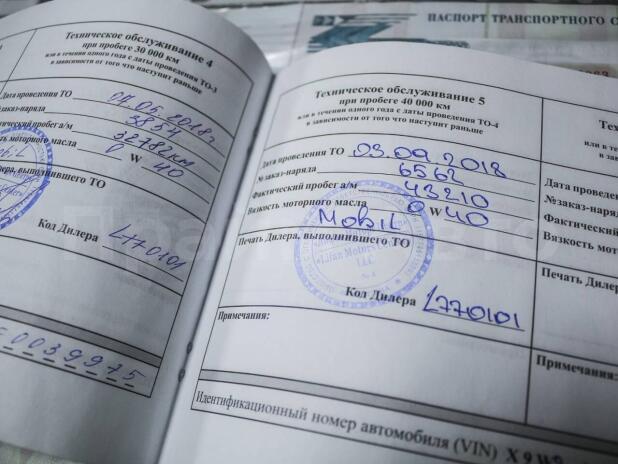 ПАСПОРТ ТРАНСПОРТНОГО С
Техническое обслуживание 4
при пробеге 30 000 км
или в течении одного года с даты проведения ТО-3
в зависимости от того что наступит раньше
Дата проведения ТО 04.05.2018г
№заказ-наряда 3854
ический пробег а/м 32782км
ть моторного масла 0 W 40
bil
лера, выполнившего ТО
Код Дилера L770101
0039975
Техническое обслуживание 5
при пробеге 40 000 км
или в течении одного года с даты проведения ТО-4
в зависимости от того что наступит раньше
Дата проведения ТО 03.09.2018
№заказ-наряда 6562
Фактический пробег а/м 43210
Вязкость моторного масла 0 W 40
Mobil
Печать Дилера, выполнившего ТО
«Lifan Motors
LLC
Код Дилера L770101
Примечания:
Идентификационный номер автомобиля (VIN) X 9 W
Те
или в те
в зави
Дата проведе
№заказ-наря
Фактический
Вязкость мот
Печать Диле
Примечания: